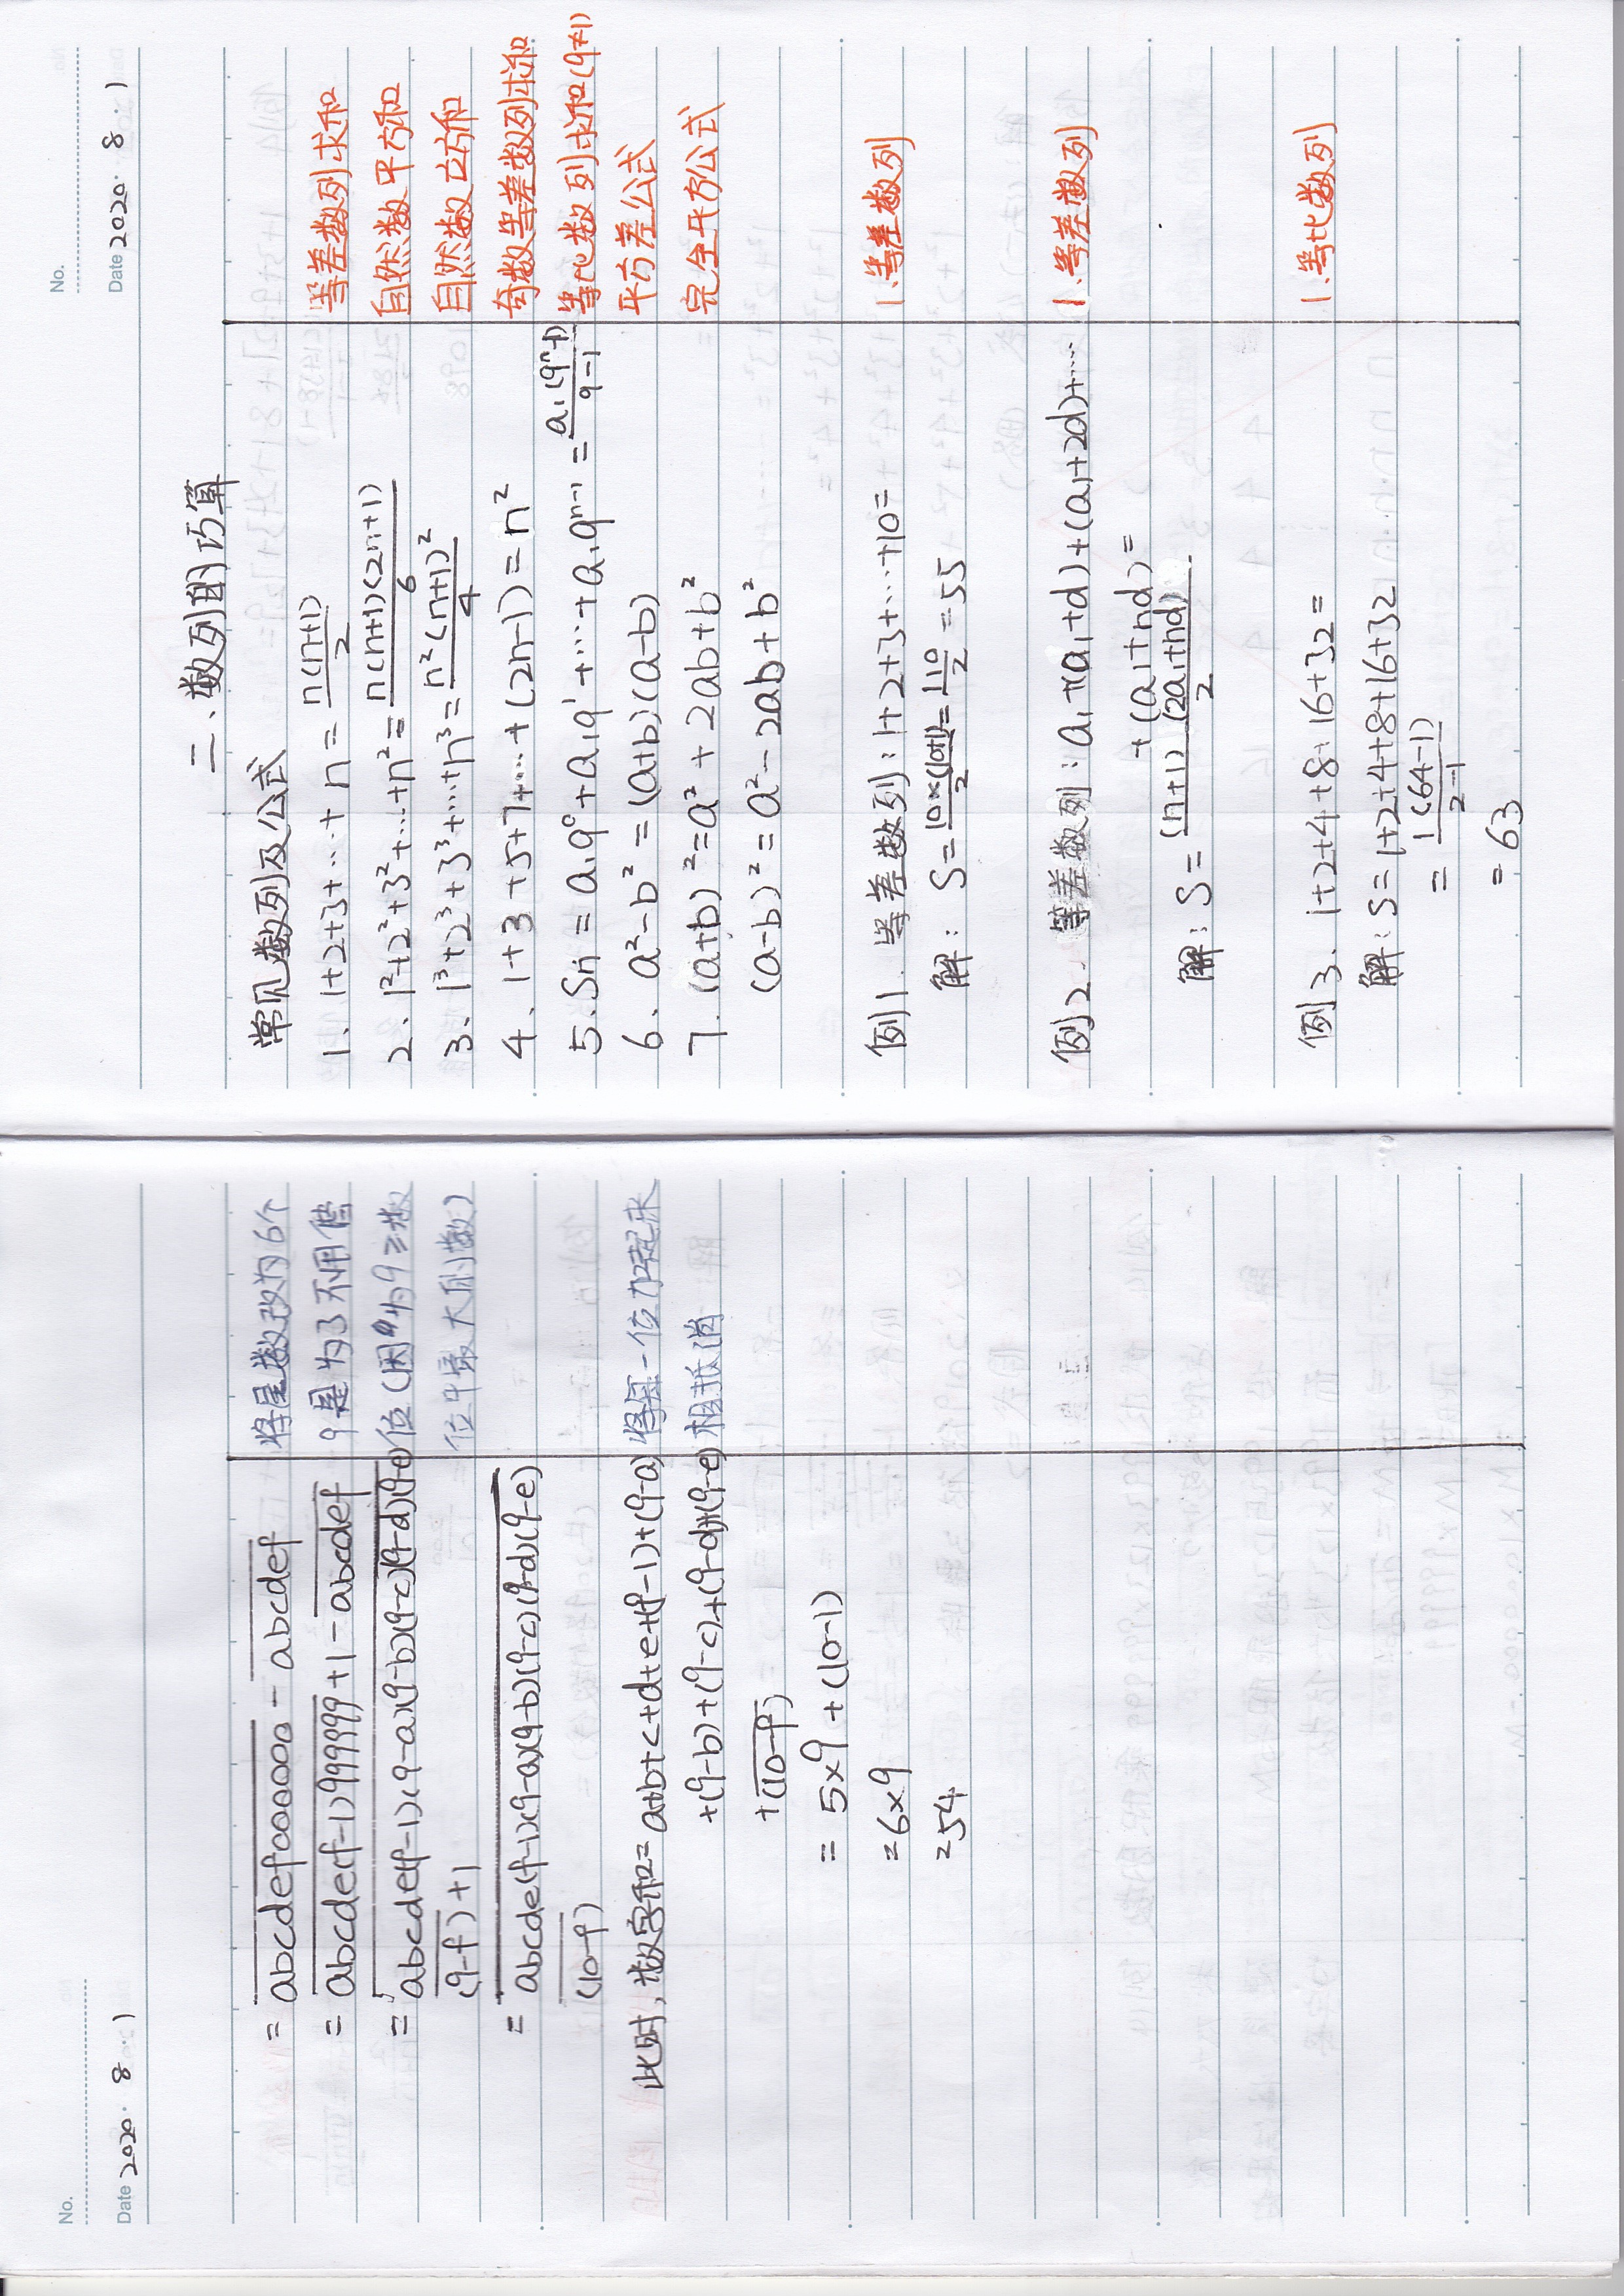 No.
Date 2020 · 8 · 1
= abcdef000000 - abcdef 将尾数改为6个
= abcde(f-1)999999+1-abcdef 9是为了不用借
= abcde(f-1)(9-a)(9-b)(9-c)(9-d)(9-e) 位(因为9≥数
(9-f)+1 位中最大的数)
= abcde(f-1)(9-a)(9-b)(9-c)(9-d)(9-e)
(10-f)
此时,数字和=a+b+c+d+e+(f-1)+(9-a) 将每一位加起来
+(9-b)+(9-c)+(9-d)+(9-e) 相抵消
+(10-f)
= 5×9+(10-1)
=6×9
=54
No.
Date 2020 · 8 · 1
二、数列的巧算
常见数列及公式
1、1+2+3+…+n=n(n+1)/2 等差数列求和
2、1²+2²+3²+…+n²=n(n+1)(2n+1)/6 自然数平方和
3、1³+2³+3³+…+n³=n²(n+1)²/4 自然数立方和
4、1+3+5+7+…+(2n-1)=n² 奇数等差数列求和
5、Sn=a₁q⁰+a₁q¹+…+a₁qⁿ⁻¹=a₁(qⁿ+1)/q-1 等比数列求和(q≠1)
6、a²-b²=(a+b)(a-b) 平方差公式
7、(a+b)²=a²+2ab+b² 完全平方公式
(a-b)²=a²-2ab+b²
例1、等差数列:1+2+3+…+10= 1.等差数列
解:S=10×(10+1)/2=110/2=55
例2、等差数列:a₁+(a₁+d)+(a₁+2d)+… 1.等差数列
+(a₁+nd)=
解:S=(n+1)(2a₁+nd)/2
例3、1+2+4+8+16+32= 1.等比数列
解:S=1+2+4+8+16+32
=1(64-1)/2-1
=63